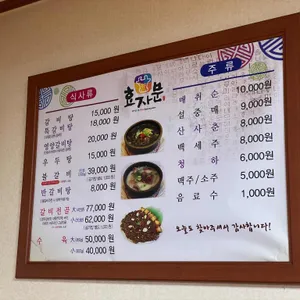 효자문
식사류
갈비탕 15,000원
특갈비탕 18,000원
영양갈비탕 20,000원
우두탕 15,000원
불갈비 39,000원
반갈비탕 8,000원
갈비전골 大 77,000원
小 62,000원
수육 大 50,000원
小 40,000원
주류
매취순 10,000원
설중매 9,000원
산사춘 8,000원
백세주 8,000원
청하 6,000원
맥주/소주 5,000원
음료수 1,000원
오늘도 찾아주셔서 감사합니다!